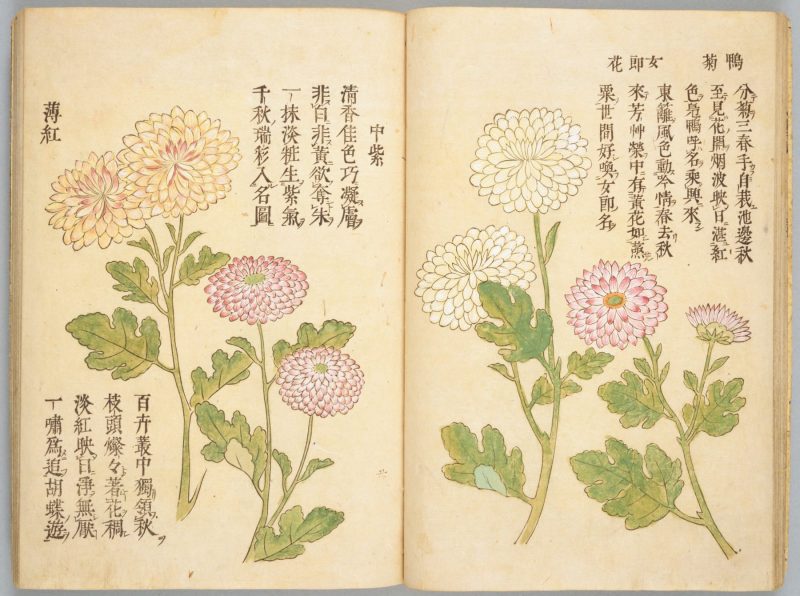 鴨菊
分菊三春手自栽池邊秋
至見花開烟波映日湛紅
色鳧鴨呼名乘興來
女即花
東籬風色動吟情春去秋
來芳艸榮中有黃花如蒸
粟世間好喚女即名
中紫
清香佳色巧凝膚
非白非黃欲奪朱
一抹淡粧生紫氣
千秋瑞彩入名圖
薄紅
百卉叢中獨領秋
枝頭燦々著花稠
淡紅映日淨無厭
一嘯爲追胡蝶遊